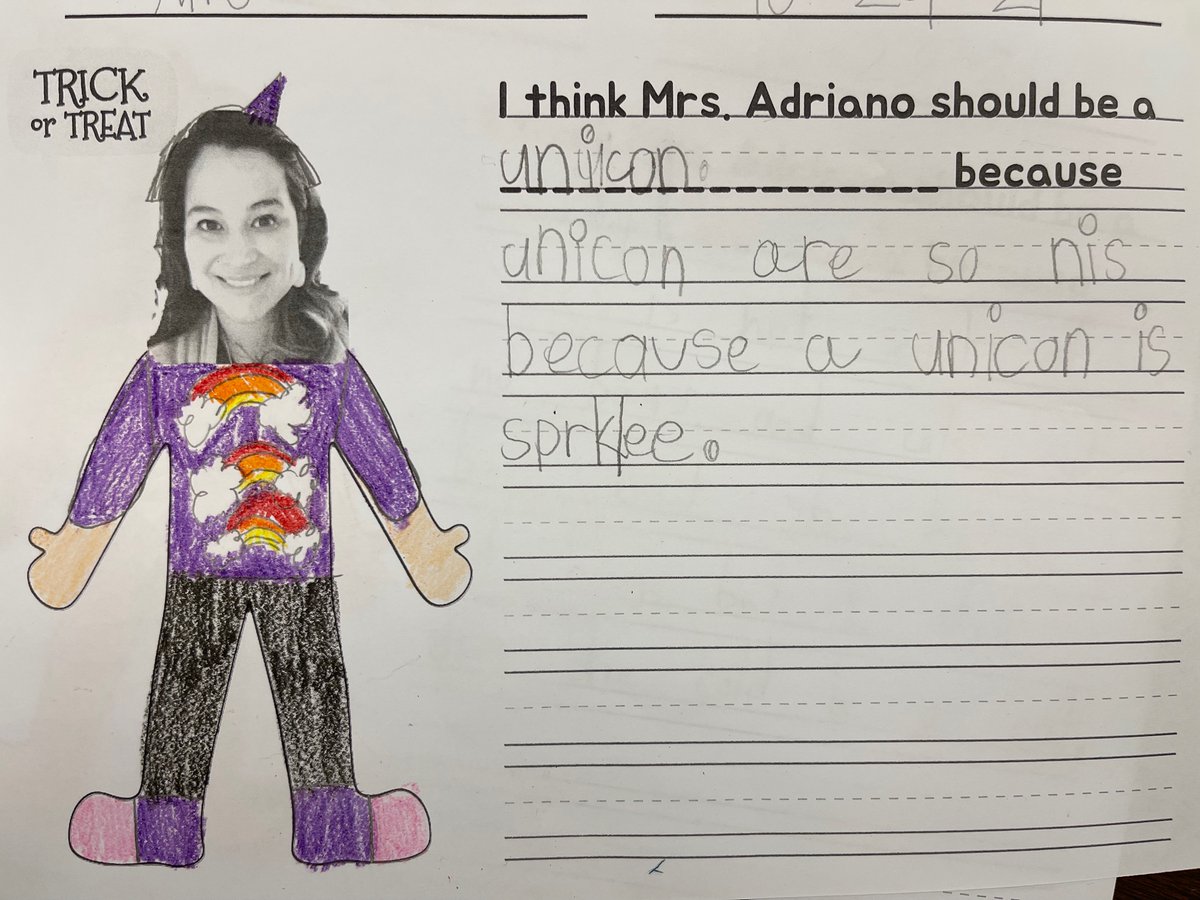 TRICK
or TREAT
I think Mrs. Adriano should be a
uniicon. because
unicon are so nis
because a unicon is
sprklee.